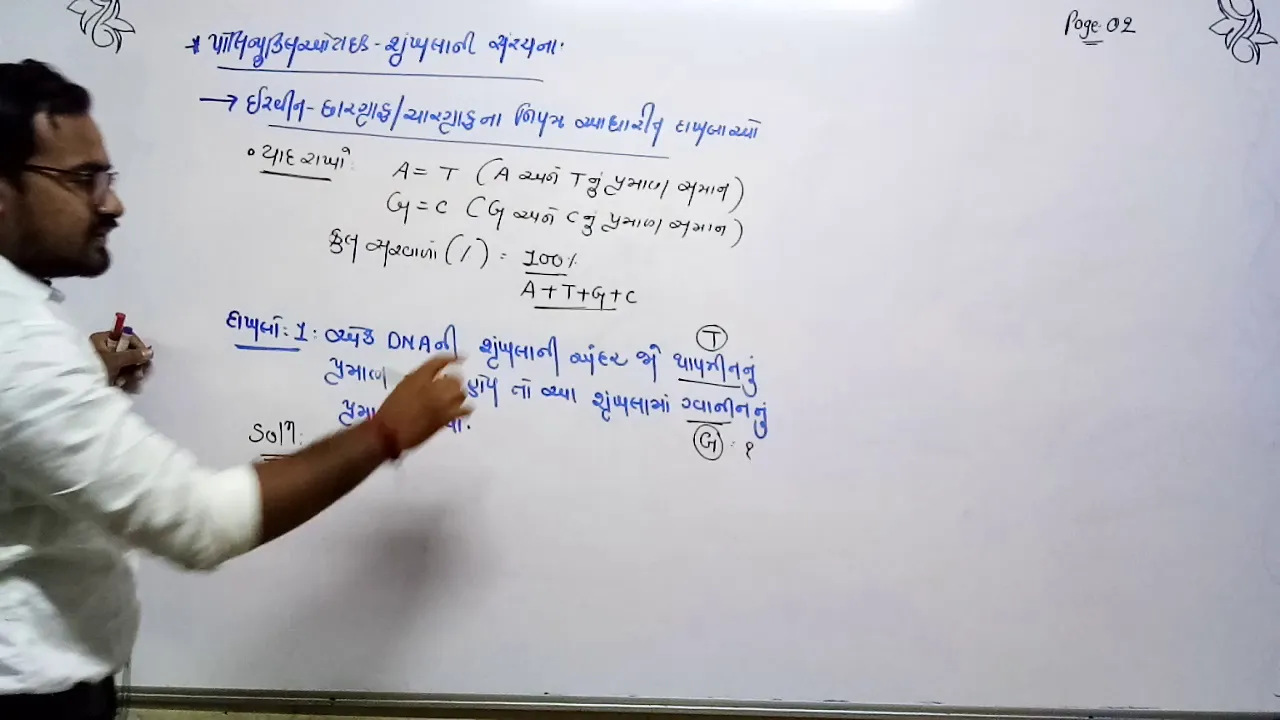 Page: 02
* પોલિન્યુક્લિઓટાઇડ - શૃંખલાની સંરચના:
→ ઇરવીન - છારગ્રાફ/ચારગ્રાફના નિયમ આધારીત દાખલાઓ
• યાદ રાખો:
A = T (A અને T નું પ્રમાણ સમાન)
G = C (G અને C નું પ્રમાણ સમાન)
કુલ સરવાળો (%) = 100%
A + T + G + C
દાખલો: 1: એક DNAની શૃંખલાની અંદર જો થાયમીનનું
T
પ્રમાણ હોય તો આ શૃંખલામાં ગ્વાનીનનું
G : ?
Solⁿ: